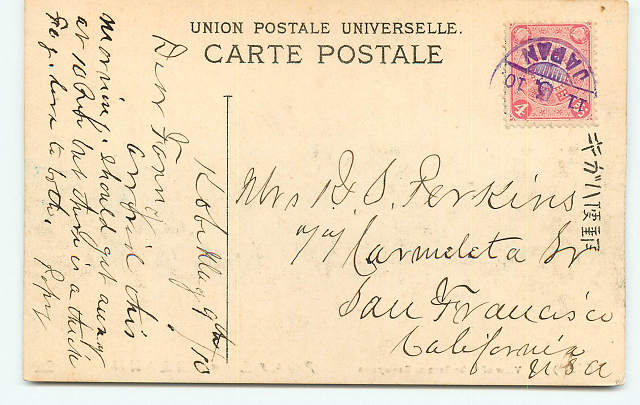 UNION POSTALE UNIVERSELLE.
CARTE POSTALE
JAPAN
11. 5. 10
4 Sn
キガハ便郵
Kobe May 9th/10
Dear Fanny
Arrived this
morning. Should get away
at 10 but there is a thick
fog. Love to both.
Mrs R. S. Perkins
77 Carmelita St
San Francisco
California
U S A